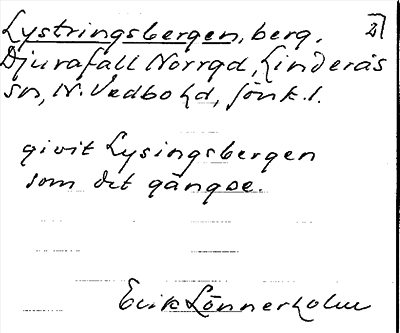 Lystringsbergen, berg. 2)
Djurafall Norrgd, Linderås
sn, N. Vedbo hd, Jönk. l.
givit Lysingsbergen
som det gängse.
Erik Lönnerholm